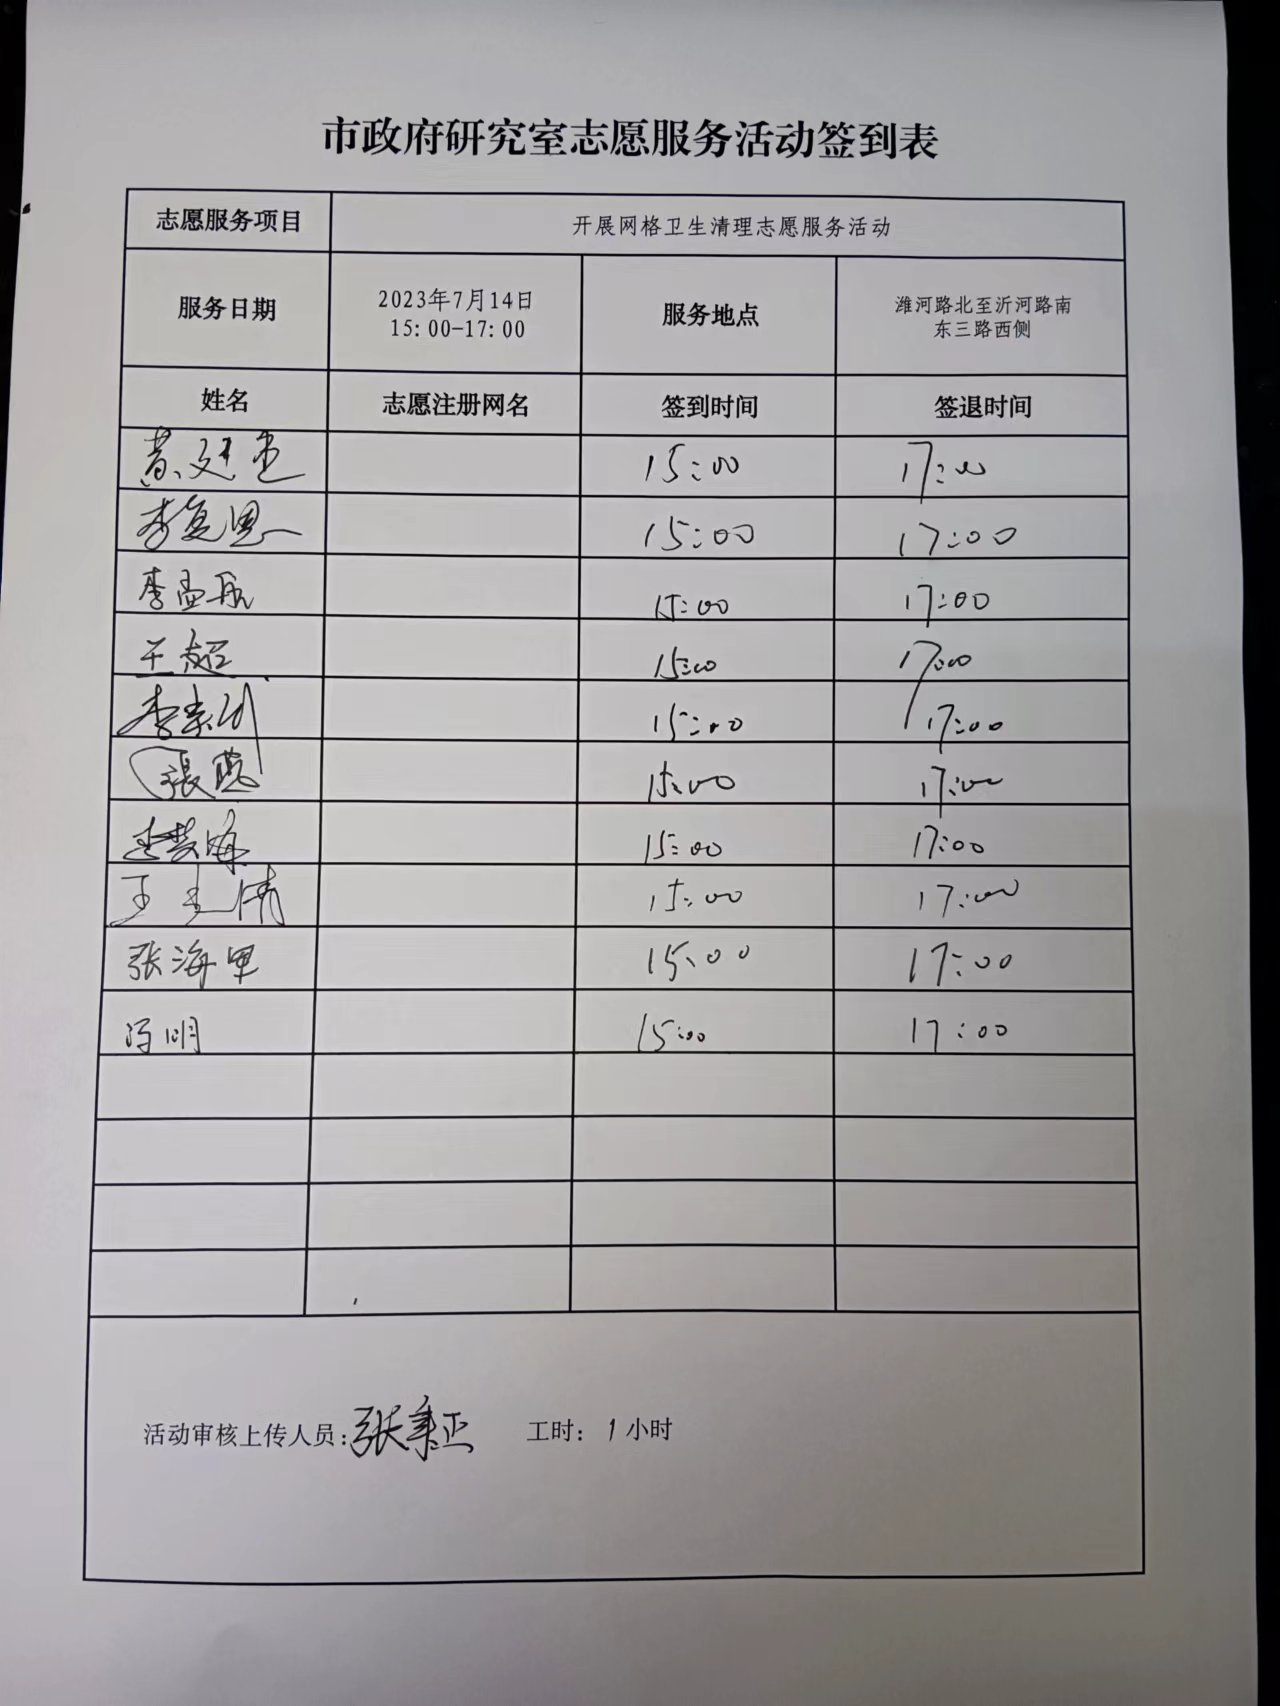 市政府研究室志愿服务活动签到表
志愿服务项目 开展网格卫生清理志愿服务活动
服务日期 2023年7月14日 15:00-17:00 服务地点 潍河路北至沂河路南 东三路西侧
姓名 志愿注册网名 签到时间 签退时间
15:00 17:00
李复恩 15:00 17:00
李孟航 15:00 17:00
王超 15:00 17:00
李 15:00 17:00
張 15:00 17:00
15:00 17:00
王 倩 15:00 17:00
张海军 15:00 17:00
冯明 15:00 17:00
活动审核上传人员:张秉正 工时: 1小时